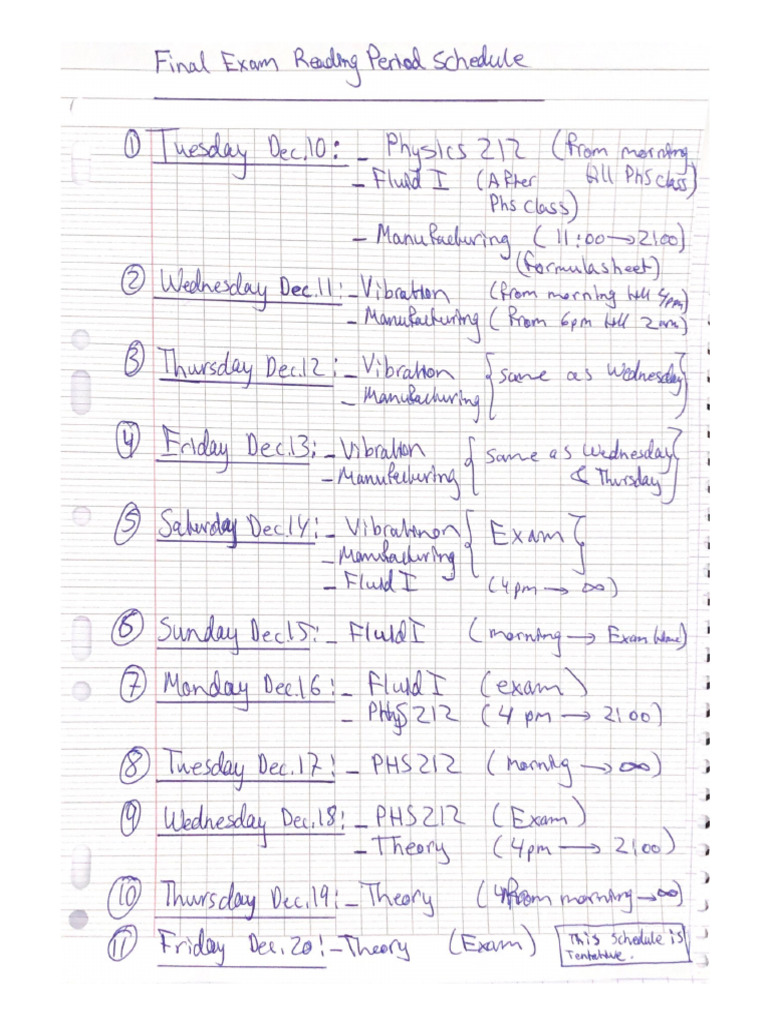 Final Exam Reading Period Schedule
① Tuesday Dec.10: - Physics 212 (from morning till Phs class)
- Fluid I (After Phs class)
- Manufacturing (11:00 → 2:00)
(formula sheet)
② Wednesday Dec.11: - Vibration (from morning till 4pm)
- Manufacturing (from 6pm till 2am)
③ Thursday Dec.12: - Vibration { same as Wednesday }
- Manufacturing
④ Friday Dec.13: - Vibration { same as Wednesday
- Manufacturing & Thursday }
⑤ Saturday Dec.14: - Vibration { Exam }
- Manufacturing
- Fluid I (4pm → ∞)
⑥ Sunday Dec.15: - Fluid I (morning → Exam time)
⑦ Monday Dec.16: - Fluid I (exam)
- PHS 212 (4 pm → 2:00)
⑧ Tuesday Dec.17: - PHS 212 (morning → ∞)
⑨ Wednesday Dec.18: - PHS 212 (Exam)
- Theory (4pm → 2:00)
⑩ Thursday Dec.19: - Theory (from morning → ∞)
⑪ Friday Dec.20: - Theory (Exam)
This schedule is
Tentative.